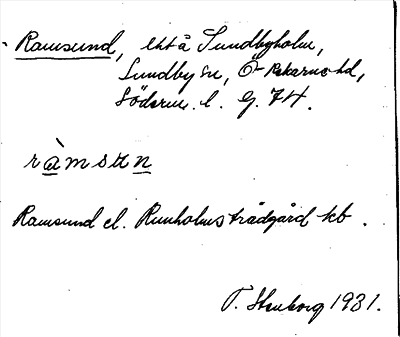 Ramsund, eht å Sundbyholm,
Sundby sn, Ö-Rekarne hd,
Söderm. l. G. 74.
ràmsun
Ramsund el. Runholms trädgård kb.
T. Stenborg 1931.